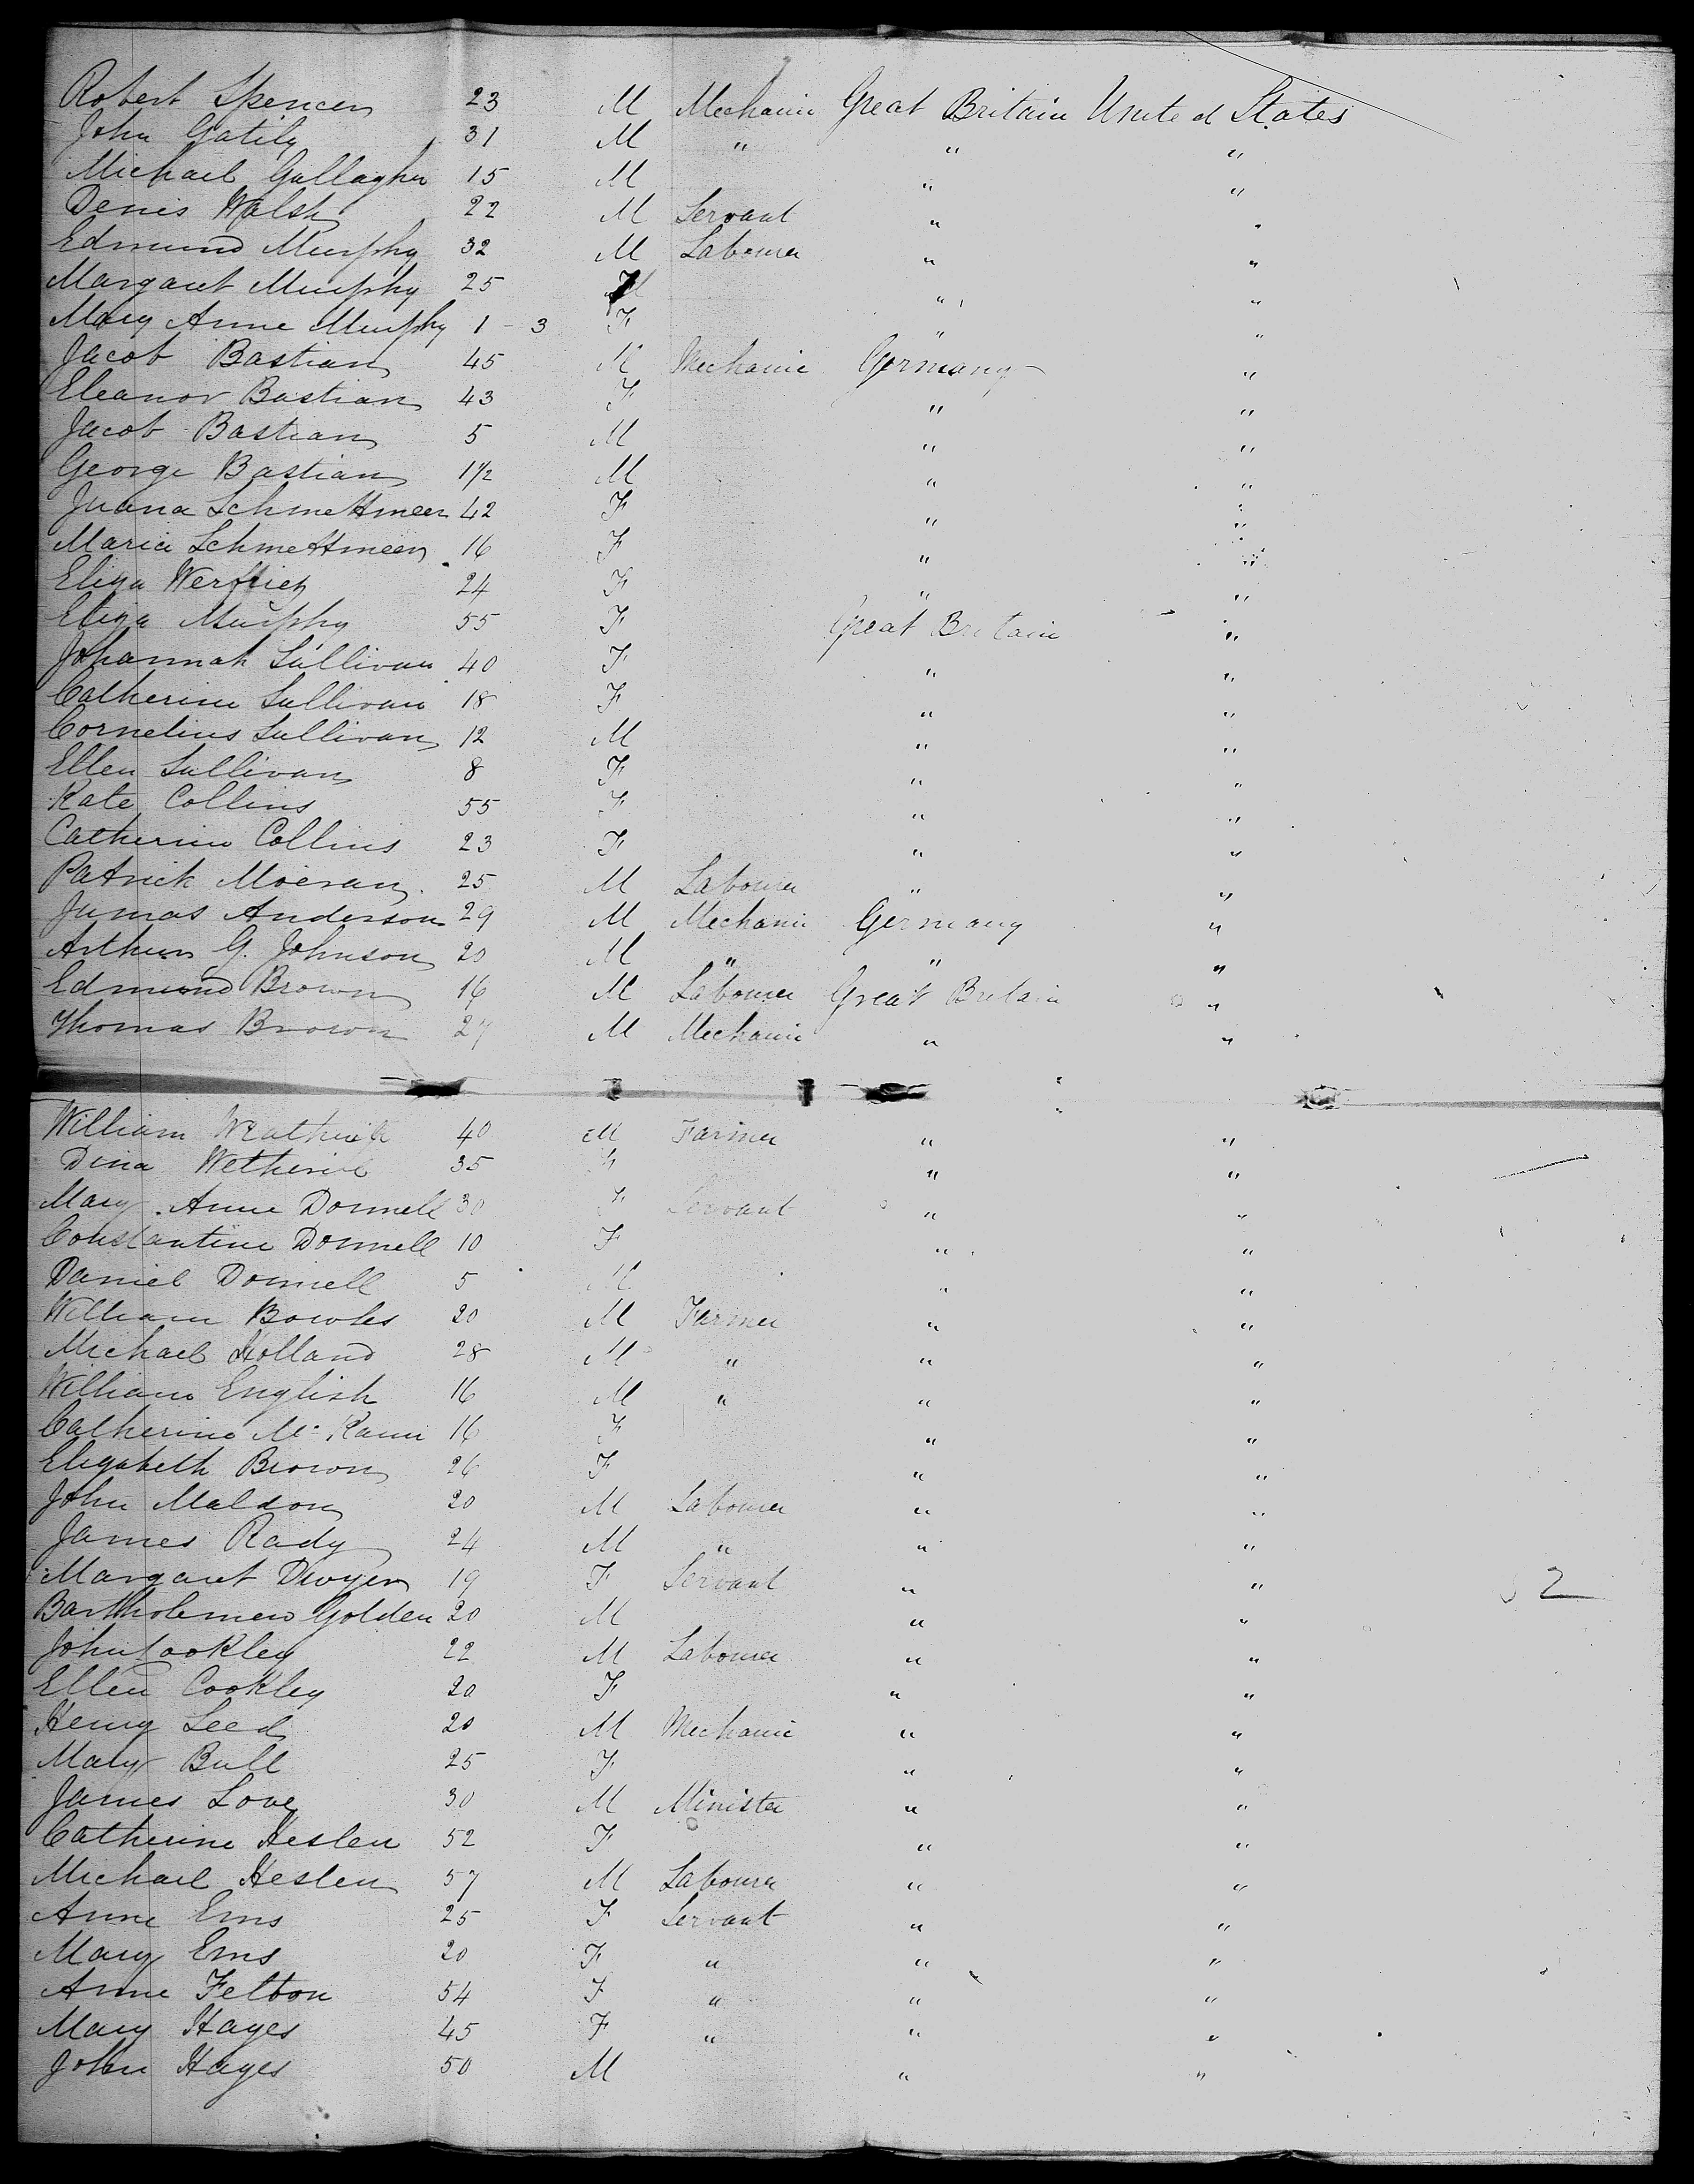 Robert Spencer 23 M Mechanic Great Britain United States
John Gatily 31 M " " "
Michael Gallagher 15 M " "
Denis Walsh 22 M Servant " "
Edmund Murphy 32 M Labourer " "
Margaret Murphy 25 F " "
Mary Anne Murphy 1 - 3 F " "
Jacob Bastian 45 M Mechanic Germany "
Eleanor Bastian 43 F " "
Jacob Bastian 5 M " "
George Bastian 1 1/2 M " "
Juana Schmettmeer 42 F " "
Maria Schmettmeer 16 F " "
Eliza 24 F " "
Eliza Murphy 55 F Great Britain "
Johannah Sullivan 40 F " "
Catherine Sullivan 18 F " "
Cornelius Sullivan 12 M " "
Ellen Sullivan 8 F " "
Kate Collins 55 F " "
Catherine Collins 23 F " "
Patrick Moeran 25 M Labourer " "
Jumas Anderson 29 M Mechanic Germany "
Arthur G. Johnson 20 M " " "
Edmund Brown 16 M Labourer Great Britain "
Thomas Brown 27 M Mechanic " "
William 40 M Farmer " "
Dina 35 F " "
Mary Anne Donnell 30 F Servant " "
Constantine Donnell 10 F " "
Daniel Donnell 5 M " "
William Bowles 20 M Farmer " "
Michael Holland 28 M " " "
William English 16 M " " "
Catherine Mc Kann 16 F " "
Elizabeth Brown 26 F " "
John Maldon 20 M Labourer " "
James Rady 24 M " " "
Margaret Dwyer 19 F Servant " " 2
Bartholemew Golden 20 M " "
John Cookley 22 M Labourer " "
Ellen Cookley 20 F " "
Henry Leed 20 M Mechanic " "
Mary Bull 25 F " "
James Love 30 M Minister " "
Catherine Heslen 52 F " "
Michael Heslen 57 M Labourer " "
Anne Ems 25 F Servant " "
Mary Ems 20 F " " "
Anne Felton 54 F " " "
Mary Hayes 45 F " " "
John Hayes 50 M " "